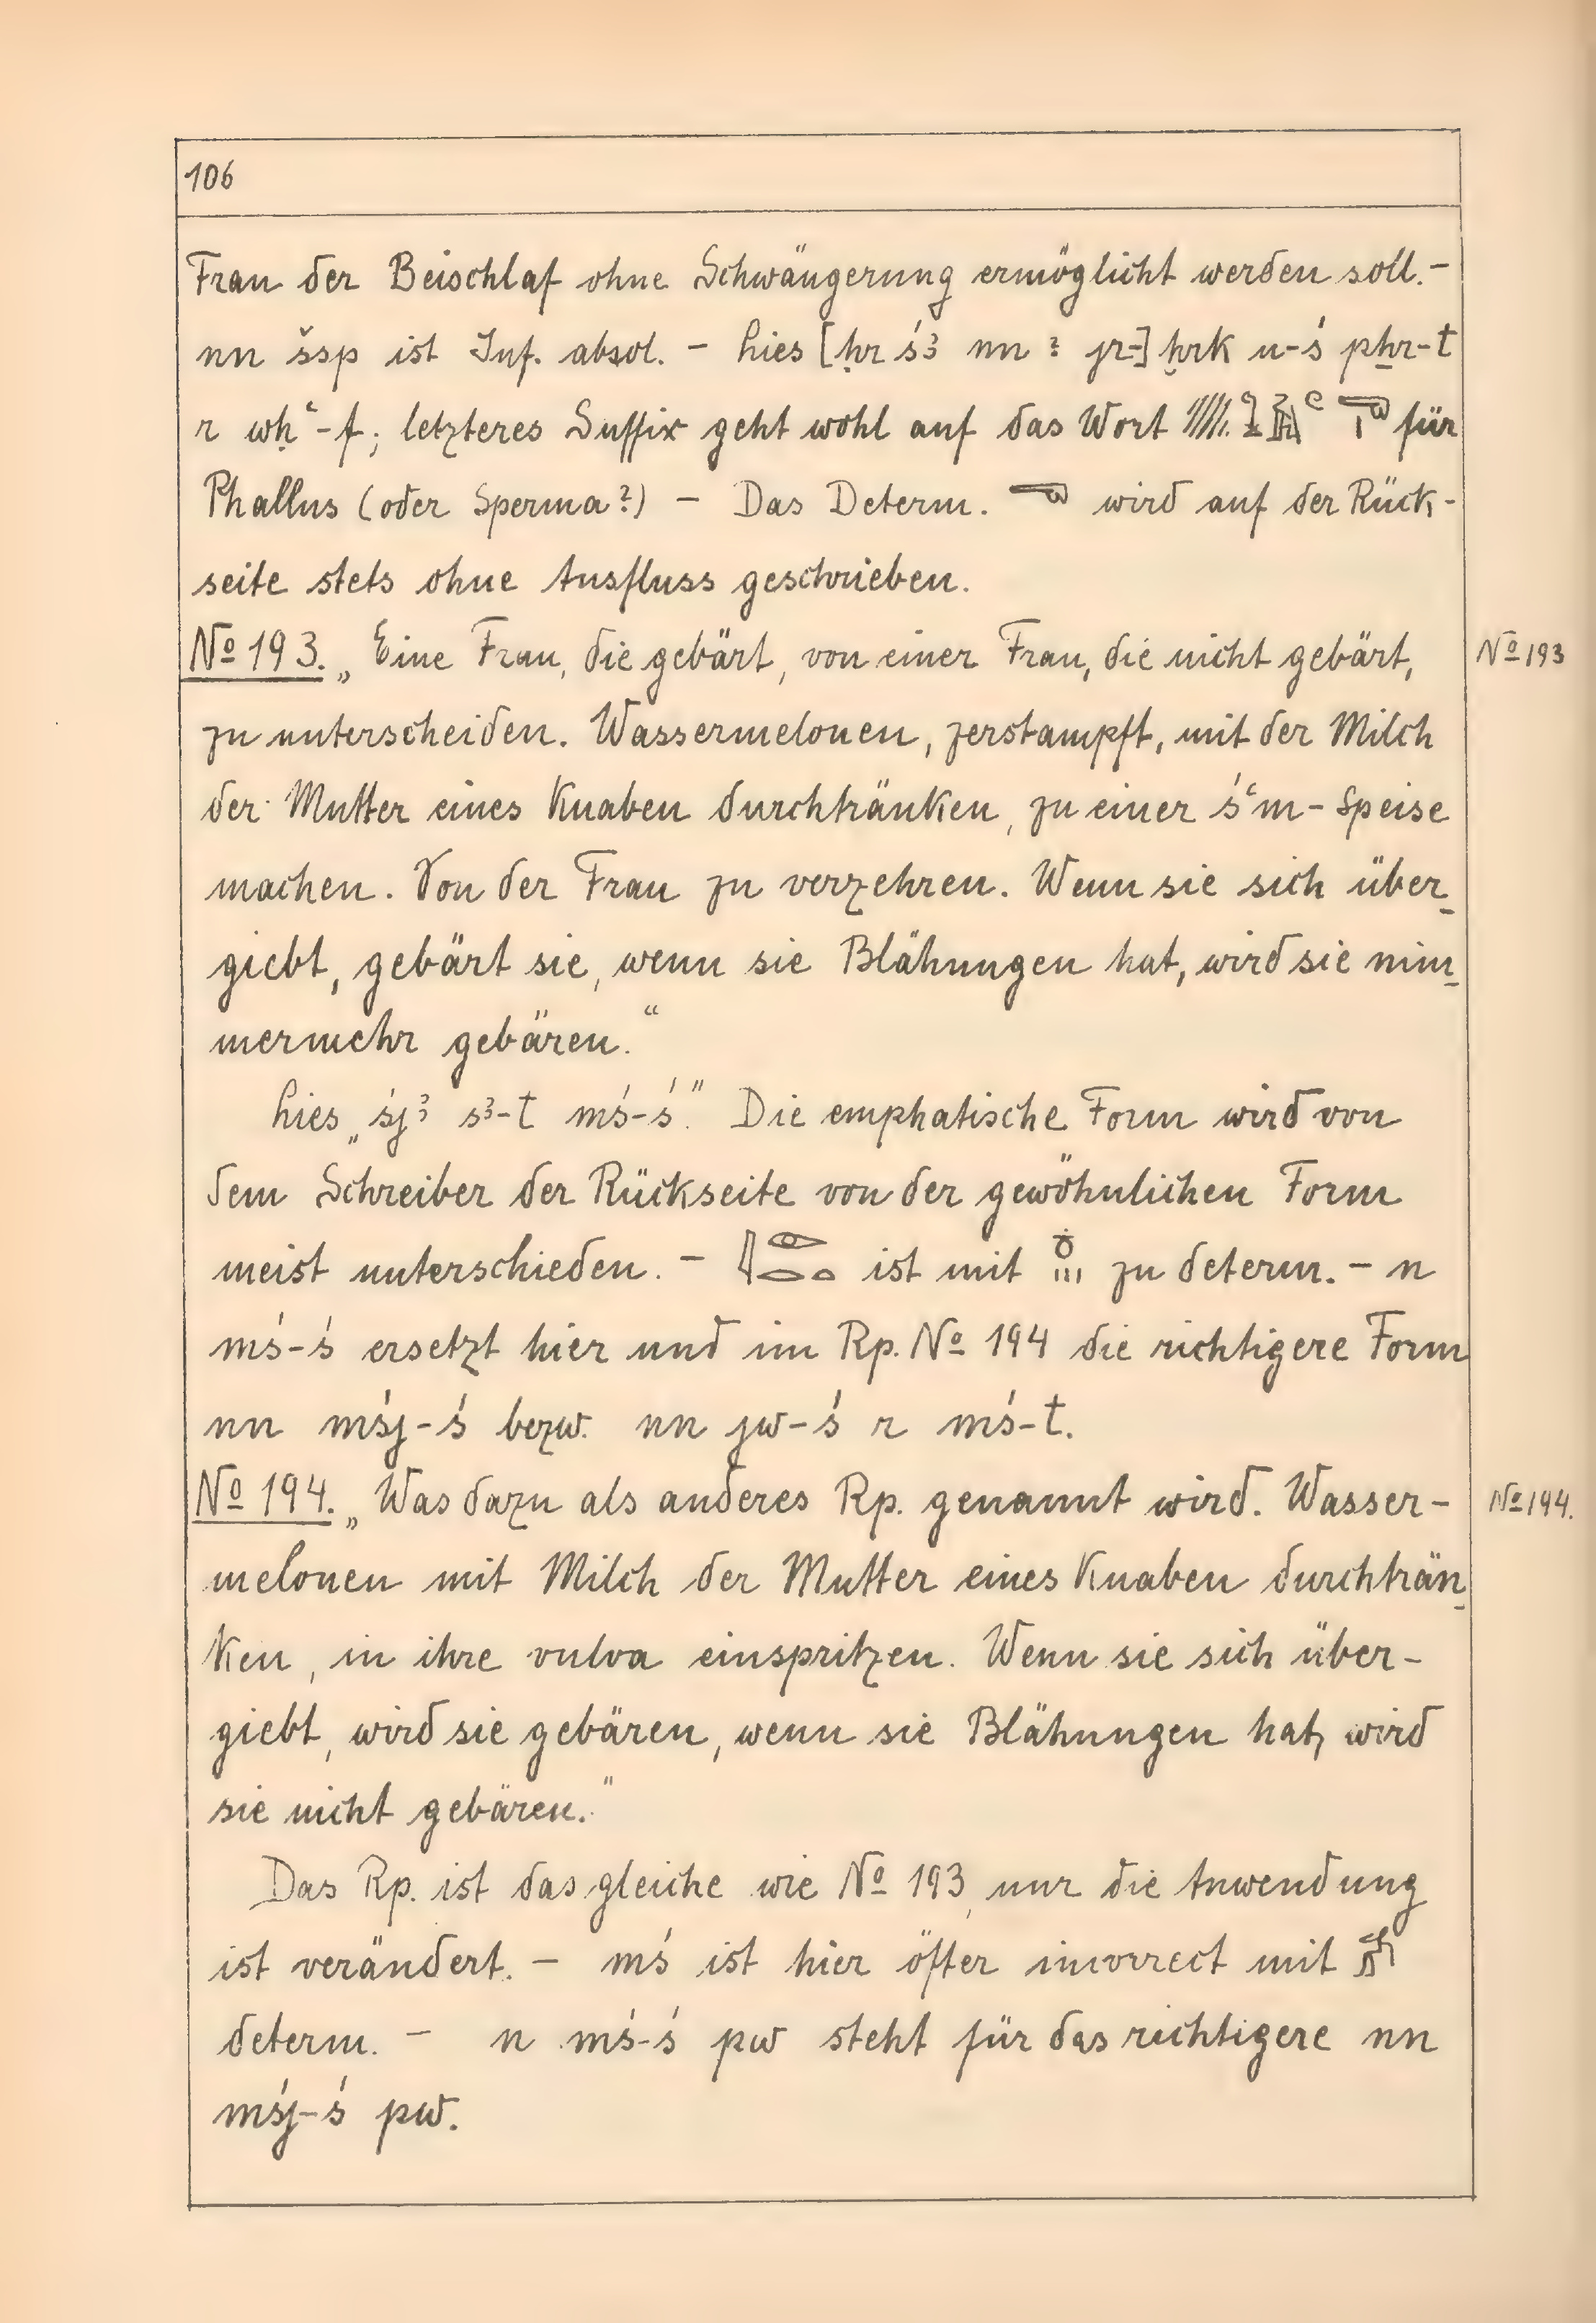 106
Frau der Beischlaf ohne Schwängerung ermöglicht werden soll. –
nn šsp ist Inf. absol. – lies [ḥr śꜣ nn ? jr-] ḫrk n-ś pẖr-t
r wḥꜥ-f; letzteres Suffix geht wohl auf das Wort für
Phallus (oder Sperma?) – Das Determ. wird auf der Rück-
seite stets ohne Ausfluss geschrieben.
No 193. „Eine Frau, die gebärt, von einer Frau, die nicht gebärt,
No 193
zu unterscheiden. Wassermelonen, zerstampft, mit der Milch
der Mutter eines Knaben durchtränken, zu einer śꜥm-Speise
machen. Von der Frau zu verzehren. Wenn sie sich über-
giebt, gebärt sie, wenn sie Blähungen hat, wird sie nim-
mermehr gebären.“
lies „śjꜣ sꜣ-t mś-ś“. Die emphatische Form wird von
dem Schreiber der Rückseite von der gewöhnlichen Form
meist unterschieden. – ist mit zu determ. – n
mś-ś ersetzt hier und im Rp. No 194 die richtigere Form
nn mśj-ś bezw. nn jw-ś r mś-t.
No 194. „Was dazu als anderes Rp. genannt wird. Wasser-
No 194.
melonen mit Milch der Mutter eines Knaben durchträn-
ken, in ihre vulva einspritzen. Wenn sie sich über-
giebt, wird sie gebären, wenn sie Blähungen hat, wird
sie nicht gebären.“
Das Rp. ist das gleiche wie No 193, nur die Anwendung
ist verändert. – mś ist hier öfter incorrect mit
determ. – n mś-ś pw steht für das richtigere nn
mśj-ś pw.